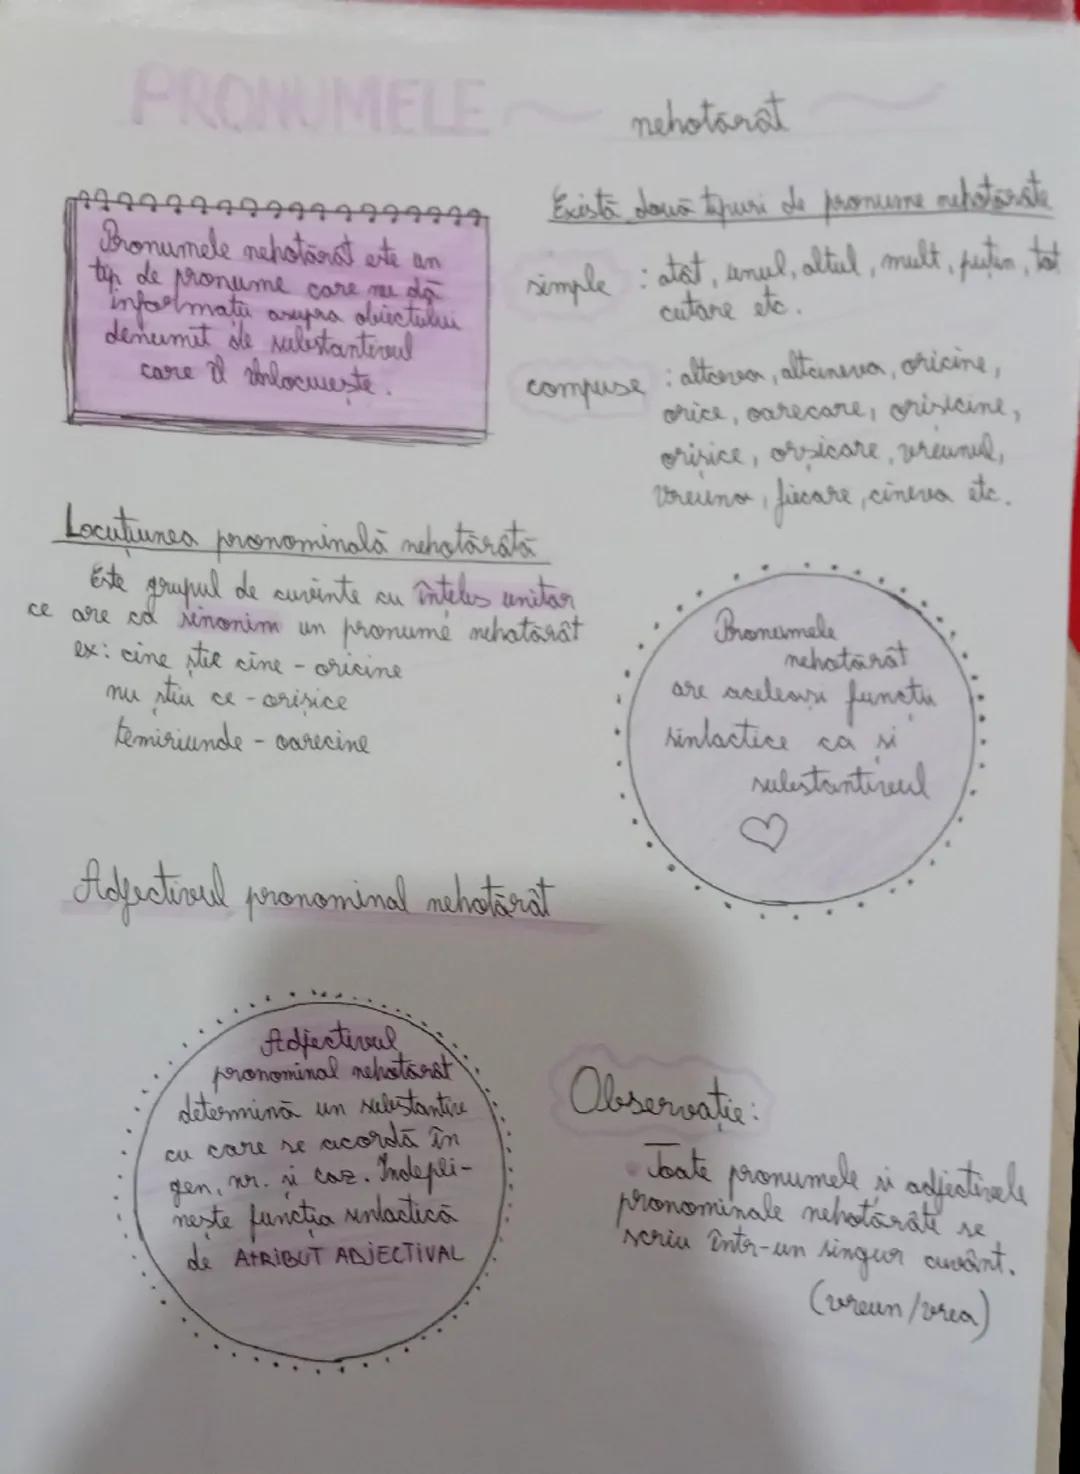 PRONUMELE nehotărât
Pronumele nehotărât este un
tip de pronume care nu dă
informații asupra obiectului
denumit de substantivul
care îl înlocuiește.
Există două tipuri de pronume nehotărâte
simple : atât, unul, altul, mult, puțin, tot
cutare etc.
compuse : altceva, altcineva, oricine,
orice, oarecare, orișicine,
orișice, orșicare, vreunul,
vreuna, fiecare, cineva etc.
Locuțiunea pronominală nehotărâtă
Este grupul de cuvinte cu înțeles unitar
ce are ca sinonim un pronume nehotărât
ex: cine știe cine - oricine
nu știu ce - orișice
temiriunde - oarecine
Pronumele
nehotărât
are aceleași funcții
sintactice ca și
substantivul
Adjectivul pronominal nehotărât
Adjectivul
pronominal nehotărât
determină un substantiv
cu care se acordă în
gen, nr. și caz. Indepli-
nește funcția sintactică
de ATRIBUT ADJECTIVAL
Observație:
Toate pronumele și adjectivele
pronominale nehotărâte se
scriu într-un singur cuvânt.
(vreun/vrea)